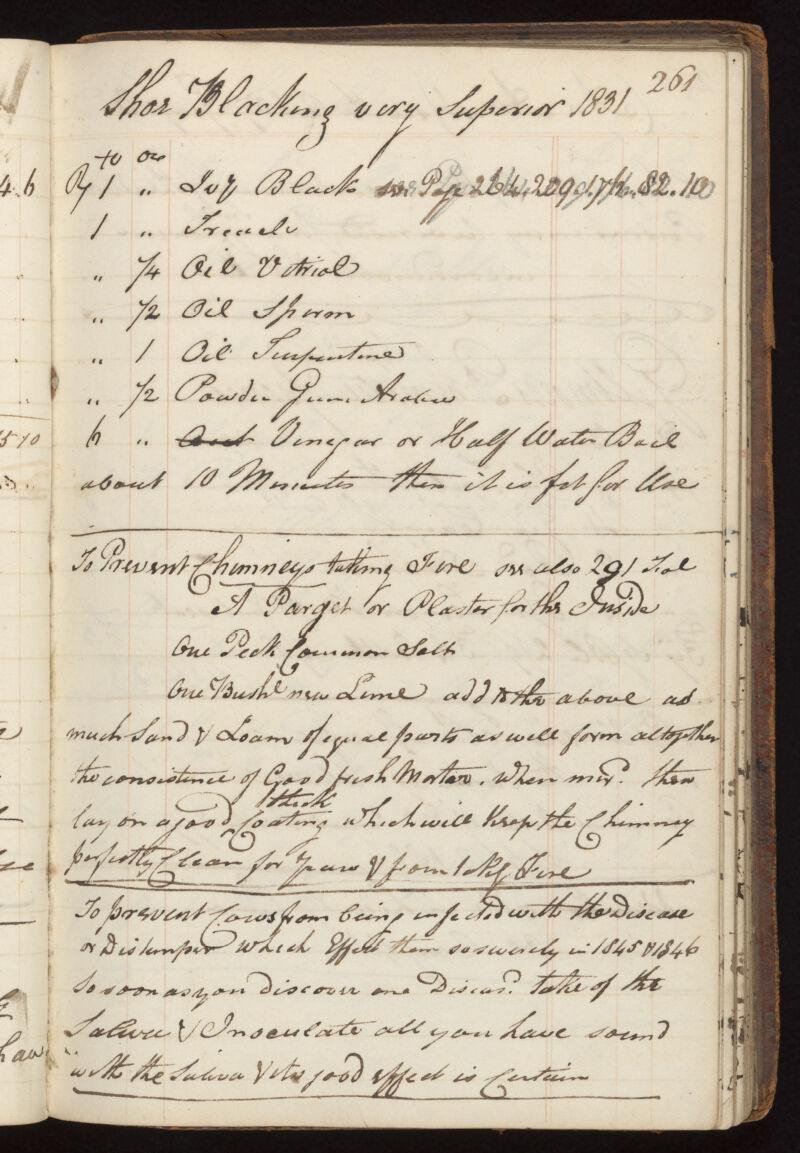 261
Shoe Blacking very Superior 1831
lb oz
R 1 " Ivy Black see Page 264. 209. 176. 82. 10
1 " Treacle
" 1/4 Oil Vitriol
" 1/2 Oil Sperm
" 1 Oil Turpentine
" 1/2 Powder Gum Arabic
6 " Vinegar or Half Water Boil
about 10 Minutes then it is fit for Use
To Prevent Chimneys taking Fire see also 291 Fol
A Parget or Plaster for the Inside
One Peck Common Salt
One Bushl new Lime add to the above as
much Sand & Loam of equal parts as will form altogether
the consistence of Good fresh Morter. When mixd. then
lay on a good thick Coating which will Keep the Chimney
perfectly Clean for Years & from takg Fire
To prevent Cows from being infected with the Disease
or Distemper which Effect them so severely in 1845 & 1846
So soon as you discover one Diseasd. take of the
Saliva & Inoculate all you have sound
with the Saliva & its good effect is Certain
4.6
haw